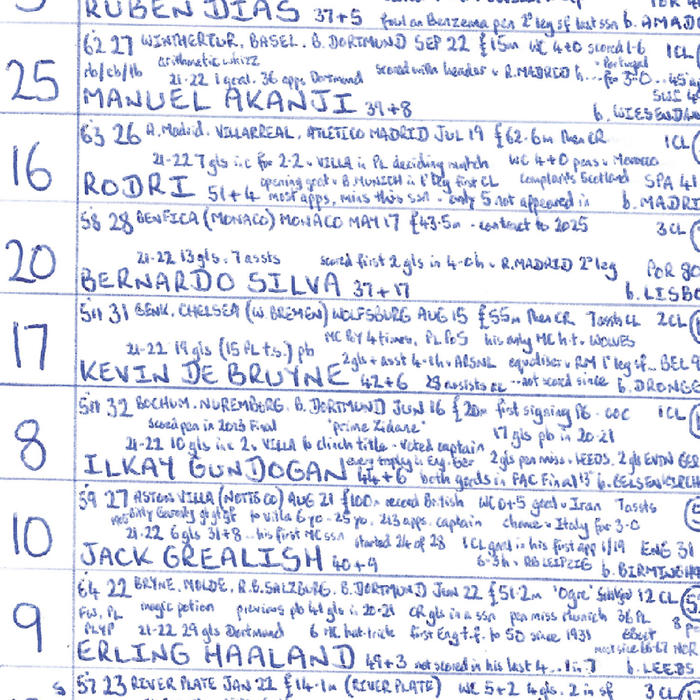 RUBEN DIAS 37+5 foul on Benzema pen 2nd leg sf last ssn b. AMAD
62 27 WINTHERTUR, BASEL. B. DORTMUND SEP 22 £15m WC 4+0 scored 1-6 1CL
rb/cb/lb arithmetic whizz v Portugal
21-22 1 goal. 36 apps Dortmund scored with header v R.MADRID for 3-0
25 MANUEL AKANJI 39+8 b. WIESENDAN
63 26 A.Madrid. VILLARREAL, ATLETICO MADRID JUL 19 £62.6m then CR 1CL
21-22 7 gls inc for 2-2 v VILLA in PL deciding match WC 4+0 pens v Morocco
opening goal v B.MUNICH in 1st leg first CL complaints Scotland SPA 41
16 RODRI 51+4 most apps, mins this ssn - only 5 not appeared in b. MADRI
58 28 BENFICA (MONACO) MONACO MAY 17 £43.5m - contract to 2025 3CL
21-22 13 gls. 7 assts scored first 2 gls in 4-0 h v R.MADRID 2nd leg POR 80
20 BERNARDO SILVA 37+17 b. LISBO
5'11 31 GENK. CHELSEA (W.BREMEN) WOLFSBURG AUG 15 £55m then CR 7assts CL 2CL
MC POY 4 times, PL PoS his only MC h.t. v WOLVES
21-22 19 gls (15 PL t.s.) pb 2gls + asst 4-1 h v ARSNL equaliser v RM 1st leg sf BEL 9
17 KEVIN DE BRUYNE 42+6 28 assists not scored since b. DRONGE
5'11 32 BOCHUM. NUREMBERG. B. DORTMUND JUN 16 £20m first signing PG - COC 1CL
scored pen in 2013 Final 'prime Zidane' 17 gls pb in 20-21
21-22 10 gls inc 2 v VILLA to clinch title - voted captain
every trophy in Eng, Ger 2gls pen miss v LEEDS. 2gls EVTN GER
8 ILKAY GUNDOGAN 44+6 both goals in FAC Final 1st b. GELSENKIRCH
59 27 ASTON VILLA (NOTTS CO) AUG 21 £100m record British WC 0+5 goal v Iran 7assts
to Villa 6 yo - 25 yo. 213 apps. captain chance v Italy for 3-0
21-22 6 gls 31+8 his first MC ssn started 24 of 28 1CL goal in his first app ENG 31
10 JACK GREALISH 40+9 6-3 h v RB LEIPZIG b. BIRMINGH
64 22 BRYNE. MOLDE. R.B.SALZBURG. B. DORTMUND JUN 22 £51.2m 'Ogre' 12 CL
FW, PL magic potion previous pb 41 gls in 20-21 CR gls in a ssn pen miss Munich 36 PL
PLYP 21-22 29 gls Dortmund 6 MC hat-tricks first Eng t.f. to 50 since 1931
9 ERLING HAALAND 49+3 not scored in his last 4 b. LEEDS
57 23 RIVER PLATE JAN 22 £14.1m (RIVER PLATE) WC 5+2 4gls. 2 in sf 3 CL